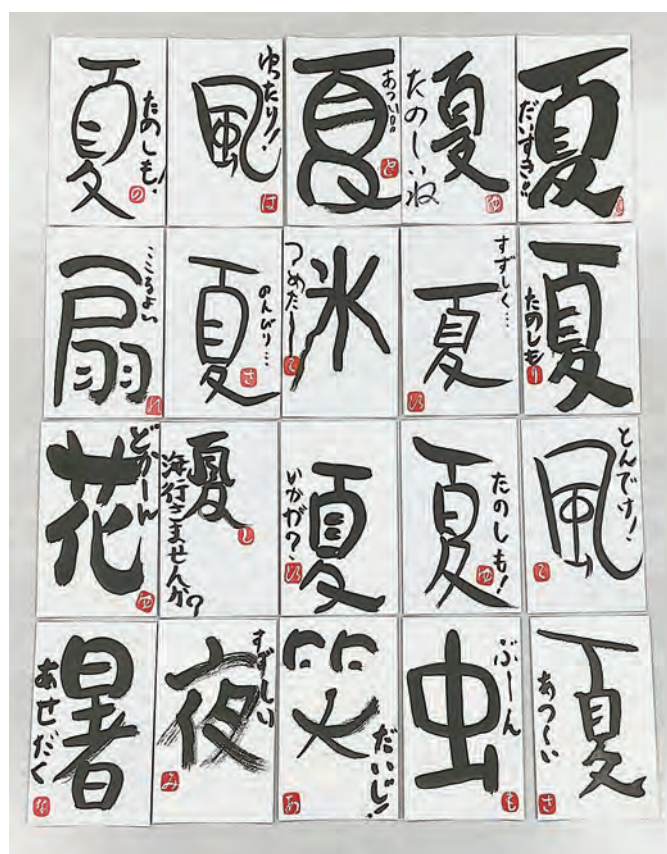 夏
たのしも!
の
風
ゆったり!
は
夏
あつい!!
と
夏
たのしいね
ゆ
夏
だいすき!!
扇
ここちよい
れ
夏
のんびり…
さ
氷
つめたーい
て
夏
すずしく…
ひろ
夏
たのしも
り
花
どかーん
ゆ
夏
海行きませんか?
し
夏
いかが?
ひろ
夏
たのしも!
ゆ
風
とんでけ!
て
暑
あせだく
な
夜
すずしい
み
笑
だいじ!
あ
虫
ぶーん
も
夏
あつ〜い
さ